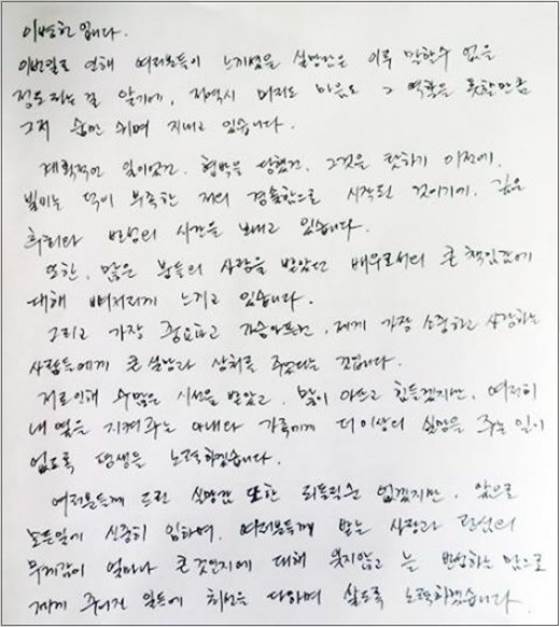 이병헌 입니다.
이번일로 인해 여러분들이 느끼셨을 실망감은 이루 말할수 없을
정도라는 걸 알기에, 저역시 머리도 마음도 그 역할을 못할만큼
그저 숨만 쉬며 지내고 있습니다.
계획적인 일이었건, 협박을 당했건, 그것을 탓하기 이전에,
빌미는 덕이 부족한 저의 경솔함으로 시작된 것이기에, 깊은
후회와 반성의 시간을 보내고 있습니다.
또한, 많은 분들의 사랑을 받았던 배우로서의 큰 책임감에
대해 뼈저리게 느끼고 있습니다.
그리고 가장 중요하고 가슴아픈건, 제게 가장 소중하고 사랑하는
사람들에게 큰 실망과 상처를 주었다는 것입니다.
저로인해 수많은 시선을 받았고, 많이 아프고 힘들겠지만, 여전히
내 옆을 지켜주는 아내와 가족에게 더이상의 실망을 주는 일이
없도록 평생을 노력하겠습니다.
여러분들께 드린 실망감 또한 되돌릴순 없겠지만, 앞으로
모든일에 신중히 임하며, 여러분들께 받는 사랑과 관심의
무게감이 얼마나 큰것인지에 대해 잊지않고 늘 반성하는 맘으로
제게 주어진 일들에 최선을 다하며 살도록 노력하겠습니다.